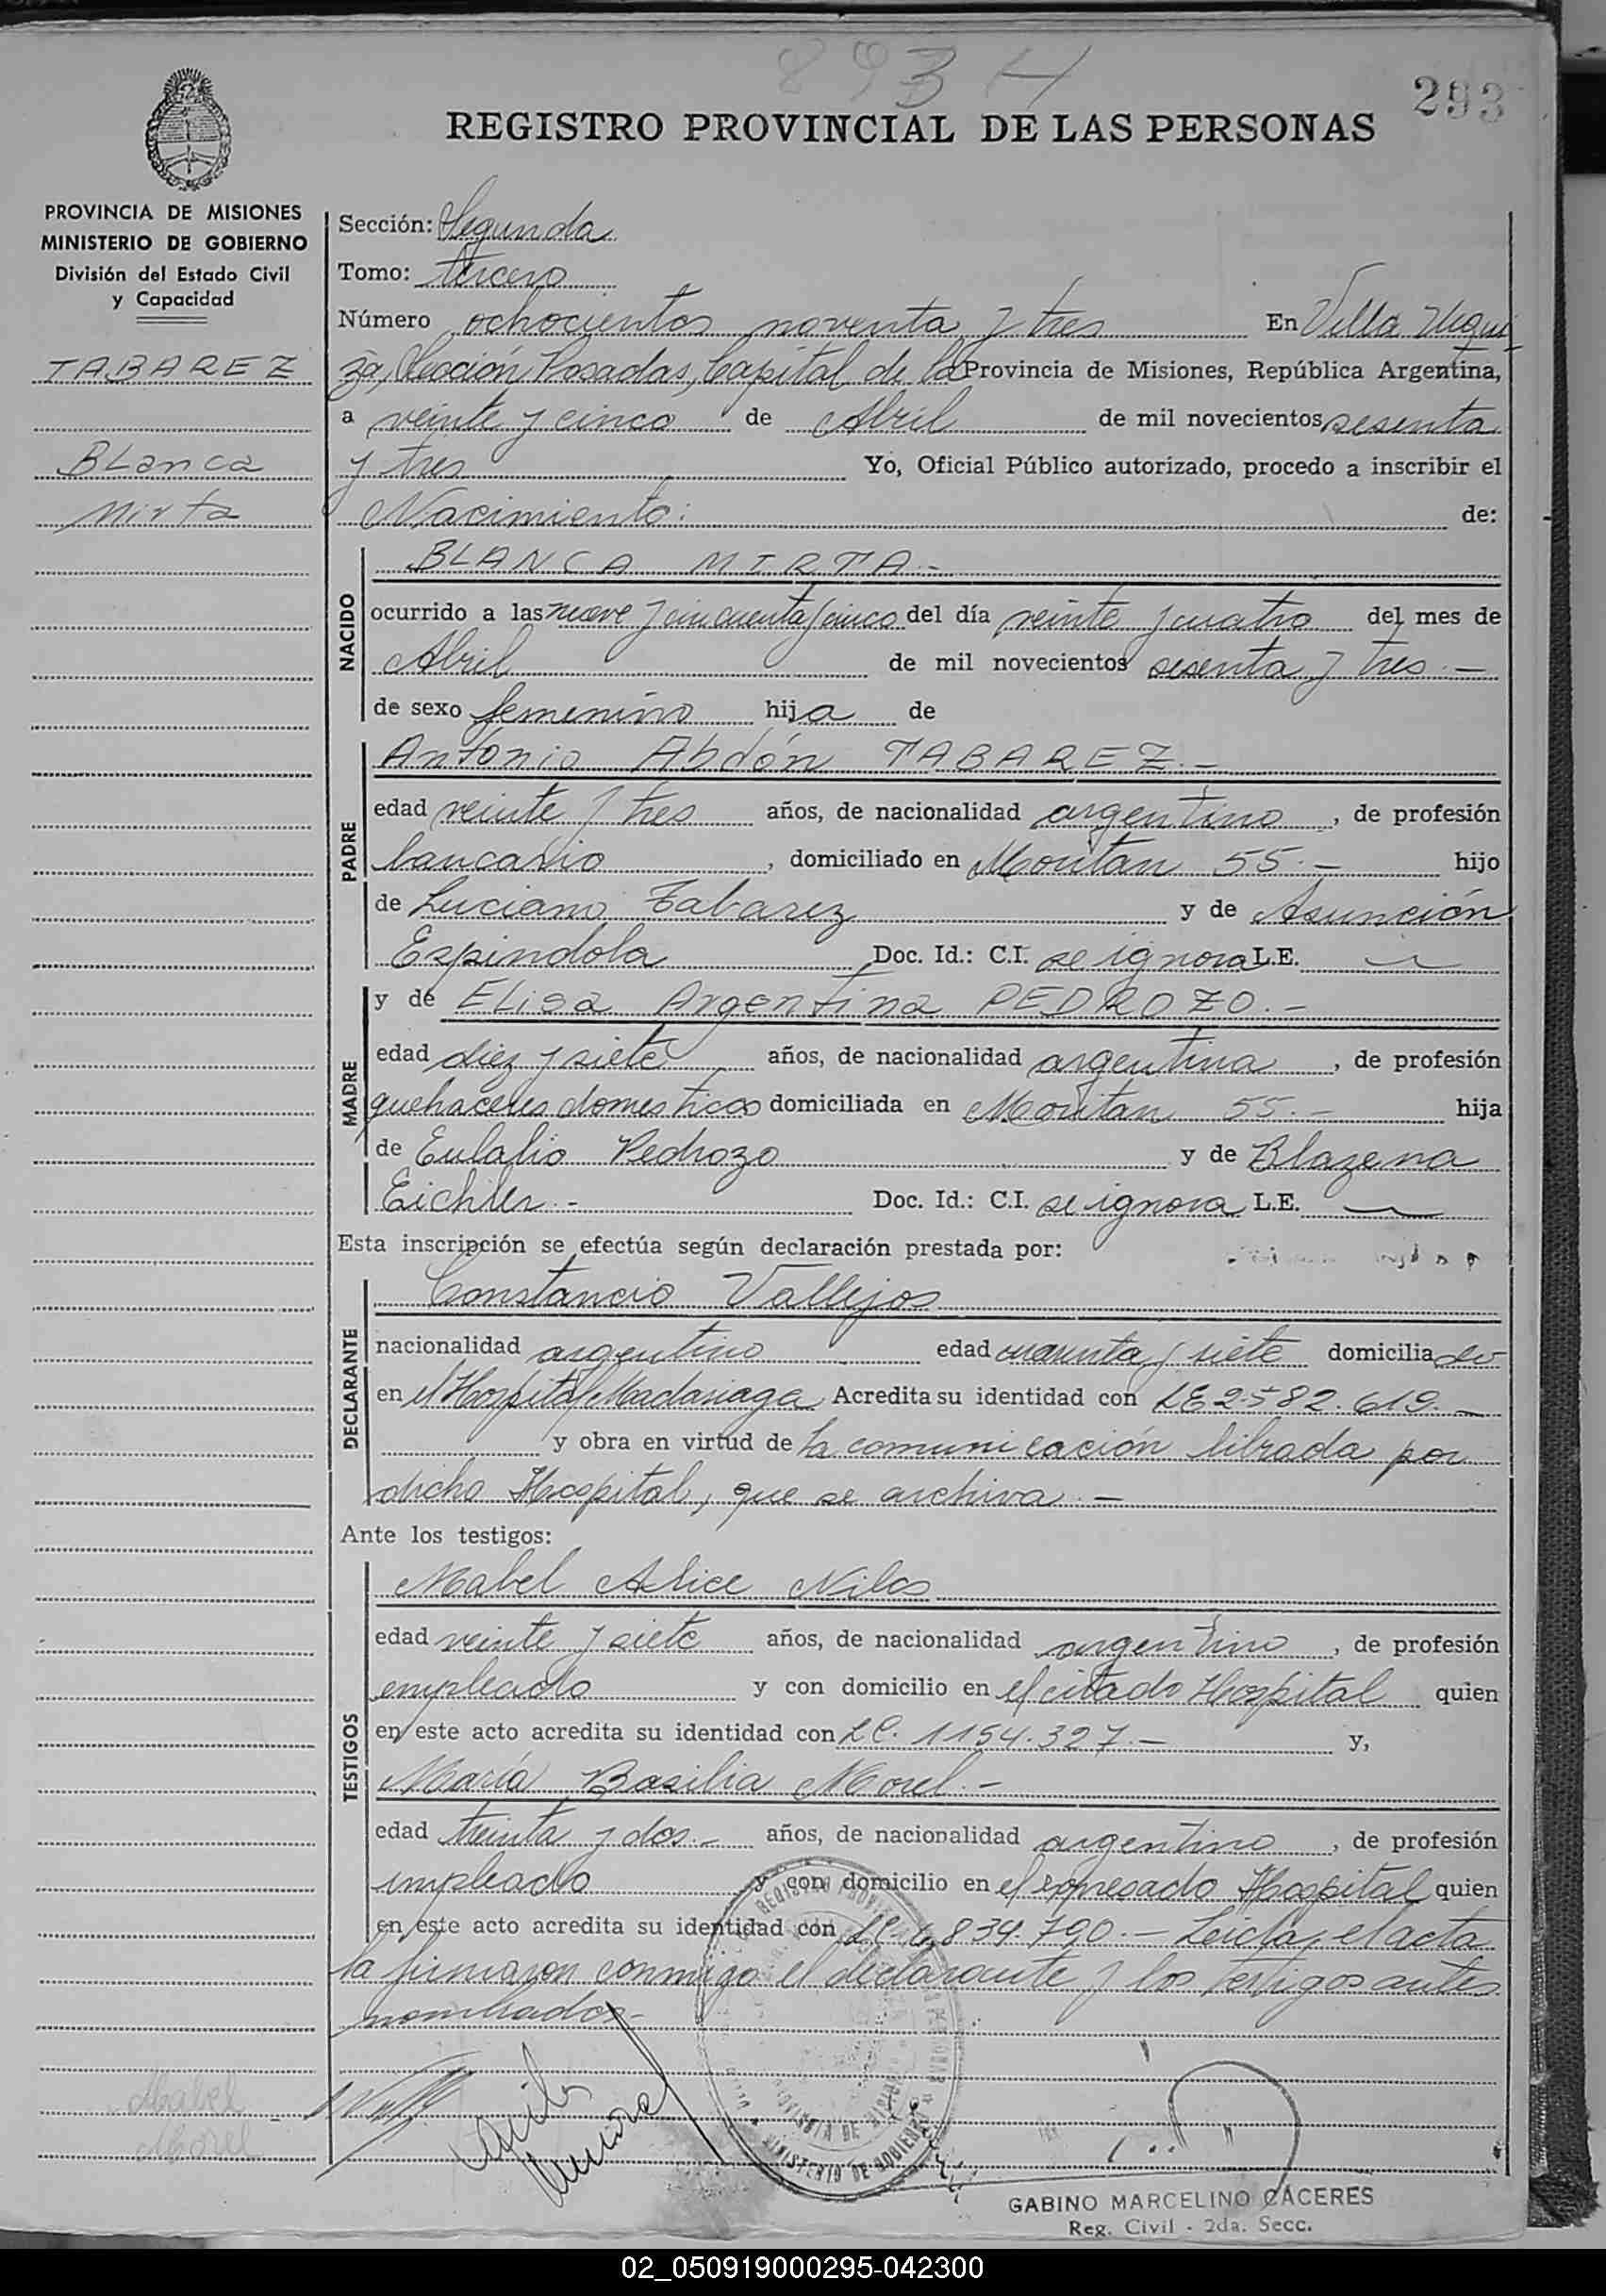 893 H
293
REGISTRO PROVINCIAL DE LAS PERSONAS
PROVINCIA DE MISIONES
MINISTERIO DE GOBIERNO
División del Estado Civil
y Capacidad
TABAREZ
Blanca
Mirta
Sección: Segunda
Tomo: tercero
Número ochocientos noventa y tres En Villa Urqui
za, Sección Posadas, Capital de la Provincia de Misiones, República Argentina,
a veinte y cinco de Abril de mil novecientos sesenta
y tres Yo, Oficial Público autorizado, procedo a inscribir el
Nacimiento: de:
NACIDO
BLANCA MIRTA.-
ocurrido a las nueve y cincuenta y cinco del día veinte y cuatro del mes de
Abril de mil novecientos sesenta y tres.-
de sexo femenino hija de
PADRE
Antonio Abdón TABAREZ.-
edad veinte y tres años, de nacionalidad argentino, de profesión
bancario, domiciliado en Moritan 55.- hijo
de Luciano Tabarez y de Asunción
Espindola Doc. Id.: C.I. se ignora L.E.
MADRE
y de Elisa Argentina PEDROZO.-
edad diez y siete años, de nacionalidad argentina, de profesión
quehaceres domesticos domiciliada en Moritan 55.- hija
de Eulalio Pedrozo y de Blazena
Eichler.- Doc. Id.: C.I. se ignora L.E.
Esta inscripción se efectúa según declaración prestada por:
DECLARANTE
Constancio Vallejos
nacionalidad argentino edad cuarenta y siete domiciliado
en el Hospital Madariaga Acredita su identidad con LE 2.582.619.-
y obra en virtud de la comunicación librada por
dicho Hospital, que se archiva.-
Ante los testigos:
TESTIGOS
Mabel Alice Nilos
edad veinte y siete años, de nacionalidad argentino, de profesión
empleado y con domicilio en el citado Hospital quien
en este acto acredita su identidad con LC. 1154.327.- y,
María Basilia Morel.-
edad treinta y dos.- años, de nacionalidad argentino, de profesión
empleado y con domicilio en el expresado Hospital quien
en este acto acredita su identidad con LC 6.839.790.- Leida, el acta
la firmaron conmigo el declarante y los testigos antes
nombrados-
Mabel
Morel
MINISTERIO DE GOBIERNO
GABINO MARCELINO CACERES
Reg. Civil - 2da. Secc.
02_050919000295-042300